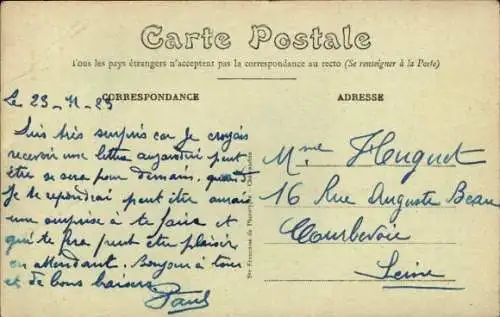 Carte Postale
Tous les pays étrangers n'acceptent pas la correspondance au recto (Se renseigner à la Poste)
CORRESPONDANCE
ADRESSE
Le 23-11-23
Suis très surpris car je croyais
recevoir une lettre aujourd'hui peut
être se sera pour demain, quand
Je te repondrai peut être aurai
une surprise à te faire et
qui te fera peut être plaisir
en attendant. Bonjour à tous
et de bons baisers
Paul
Mme Huguet
16 Rue Auguste Beau
Courbevoie
Seine